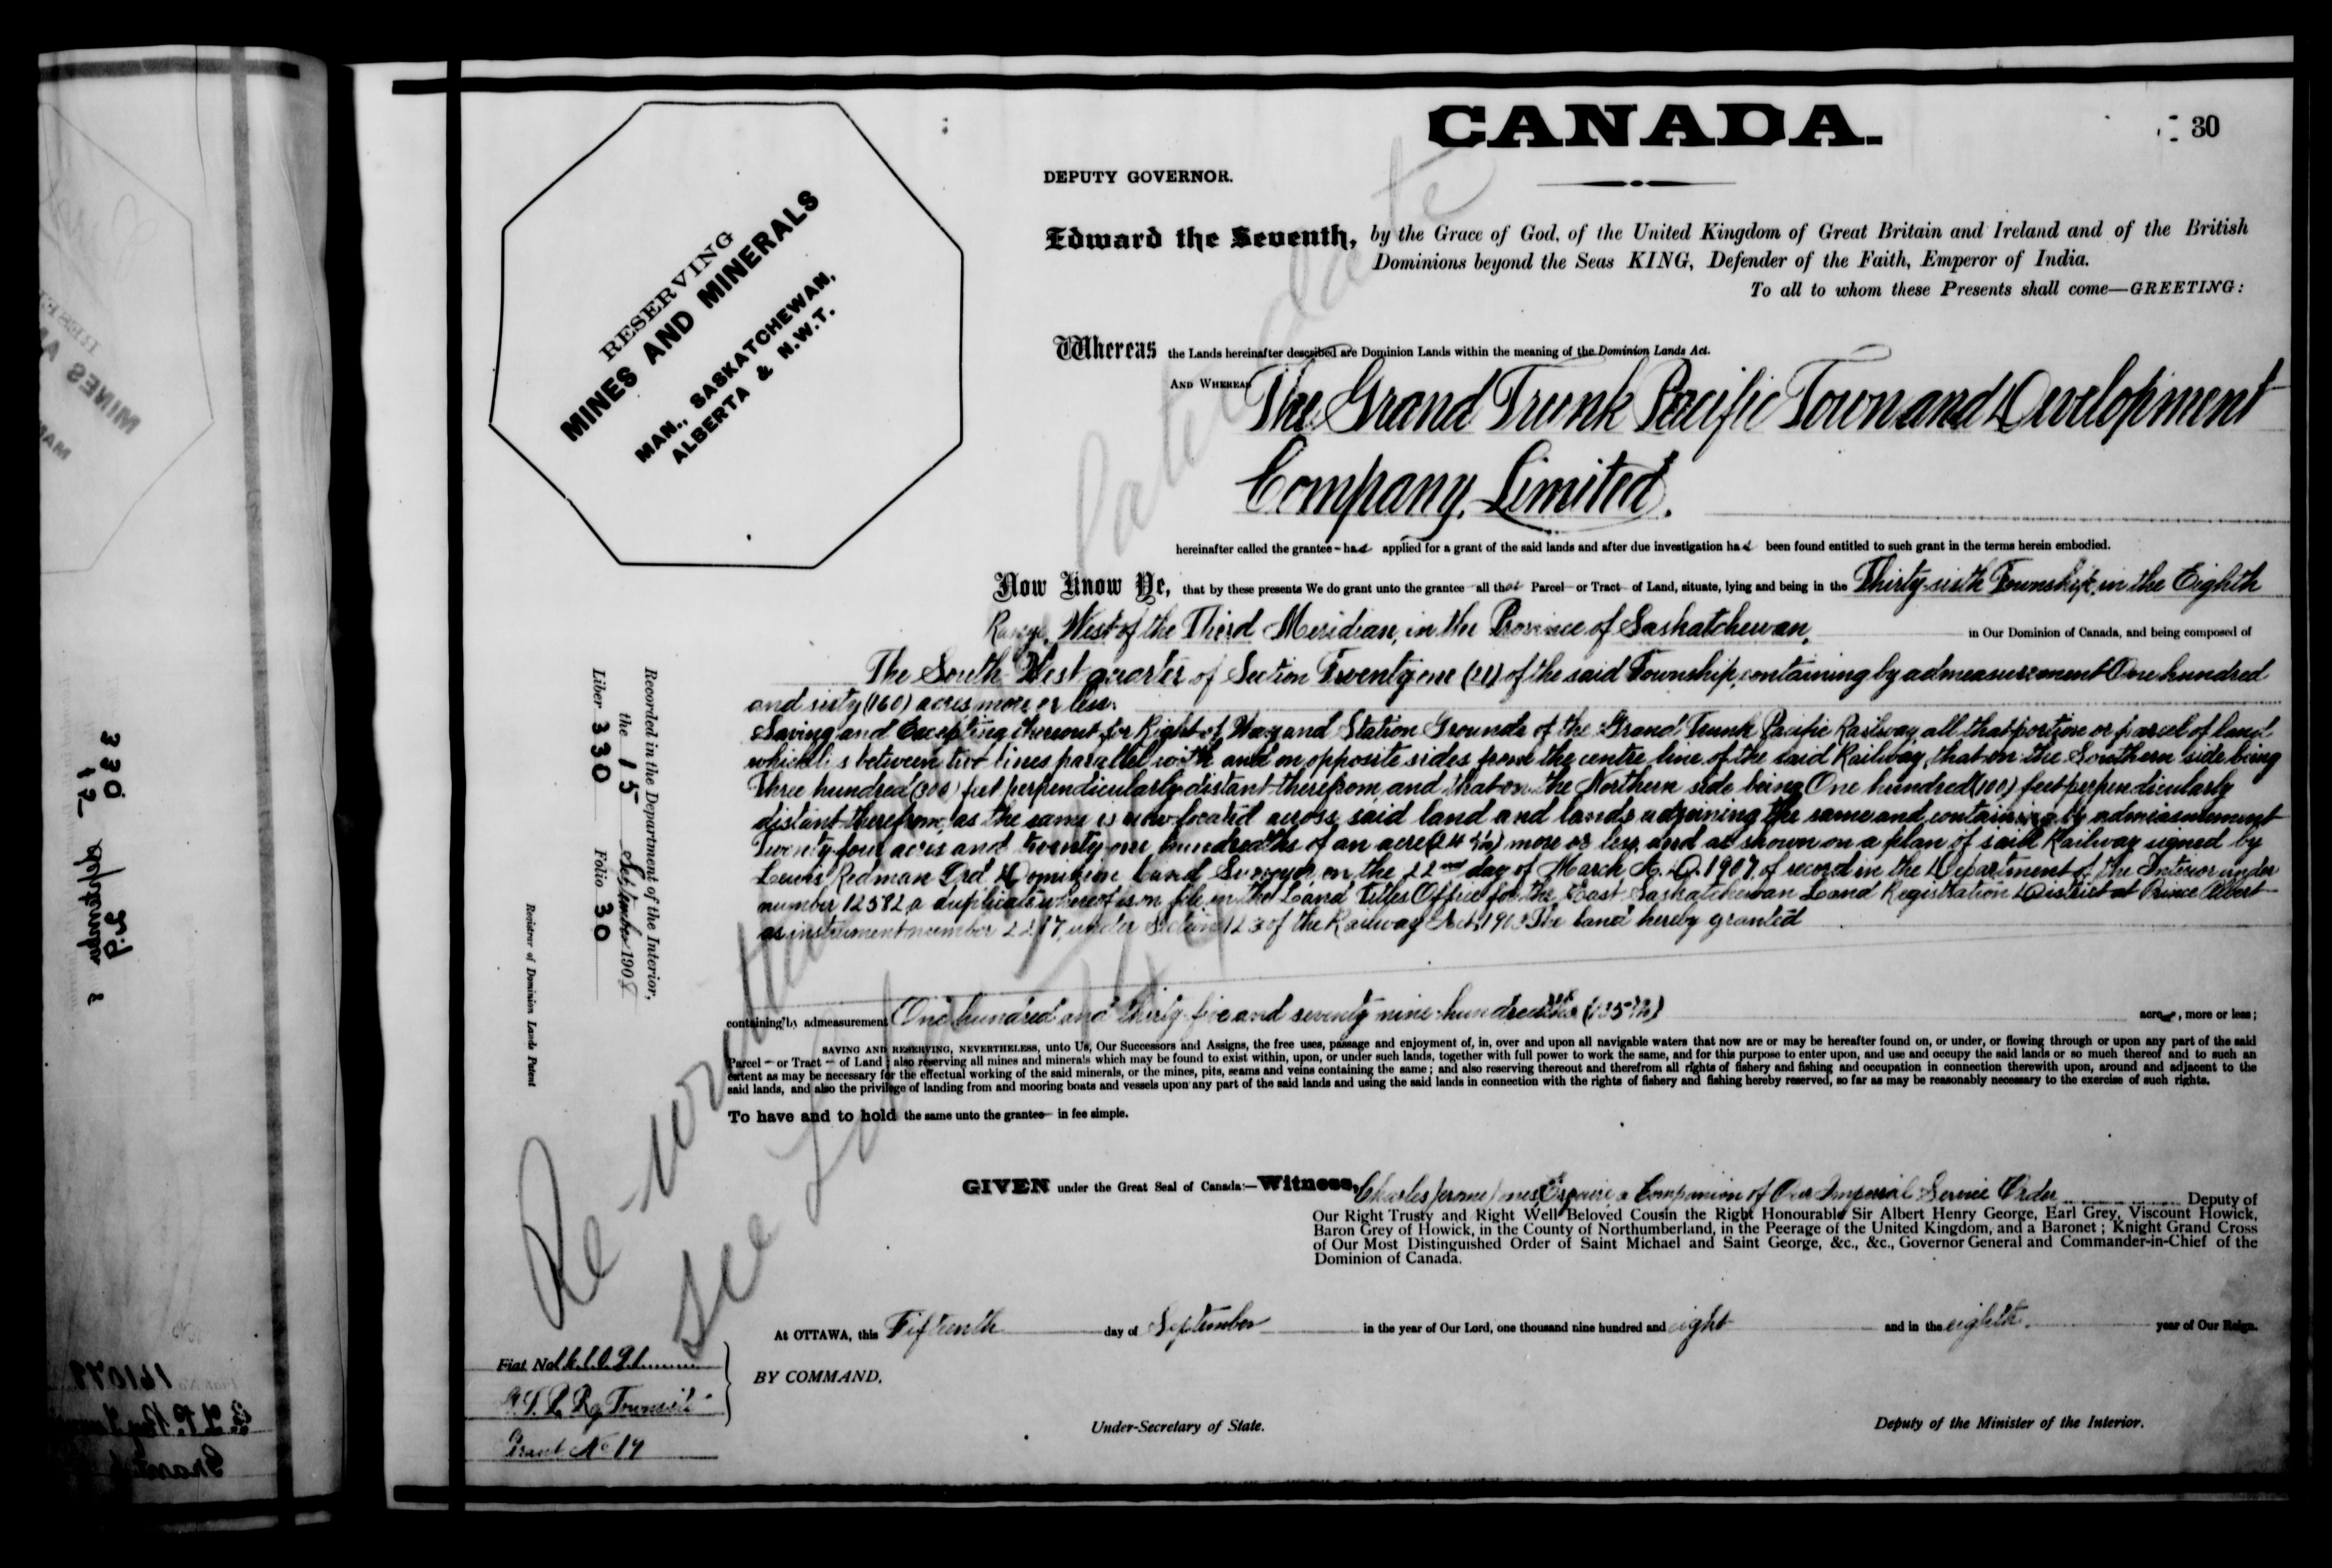 CANADA.
30
DEPUTY GOVERNOR.
RESERVING
MINES AND MINERALS
MAN., SASKATCHEWAN,
ALBERTA & N.W.T.
Edward the Seventh, by the Grace of God, of the United Kingdom of Great Britain and Ireland and of the British
Dominions beyond the Seas KING, Defender of the Faith, Emperor of India.
To all to whom these Presents shall come—GREETING:
Whereas the Lands hereinafter described are Dominion Lands within the meaning of the Dominion Lands Act.
AND WHEREAS The Grand Trunk Pacific Town and Development
Company, Limited.
hereinafter called the grantee has applied for a grant of the said lands and after due investigation has been found entitled to such grant in the terms herein embodied.
Now Know Ye, that by these presents We do grant unto the grantee all that Parcel or Tract of Land, situate, lying and being in the Thirty-sixth Township, in the Eighth
Range, West of the Third Meridian, in the Province of Saskatchewan, in Our Dominion of Canada, and being composed of
The South West quarter of Section Twenty one (21) of the said Township, containing by admeasurement One hundred
and sixty (160) acres more or less.
Saving and Excepting thereout for Right of Way and Station Grounds of the Grand Trunk Pacific Railway all that portion or parcel of land
which lies between two lines parallel with and on opposite sides from the centre line of the said Railway, that on the Southern side being
Three hundred (300) feet perpendicularly distant therefrom, and that on the Northern side being One hundred (100) feet perpendicularly
distant therefrom, as the same is now located across said land and lands adjoining the same and containing by admeasurement
Twenty-four acres and twenty-one hundredths of an acre more or less, and as shown on a plan of said Railway signed by
Lewis Redman Ord Dominion Land Surveyor on the 22nd day of March A.D. 1907, of record in the Department of the Interior under
number 12582 a duplicate whereof is on file in the Land Titles Office for the East Saskatchewan Land Registration District at Prince Albert
as instrument number 2217, under Section 123 of the Railway Act, 1903 The land hereby granted
containing by admeasurement One hundred and thirty five and seventy nine hundredths acres, more or less;
SAVING AND RESERVING, NEVERTHELESS, unto Us, Our Successors and Assigns, the free uses, passage and enjoyment of, in, over and upon all navigable waters that now are or may be hereafter found on, or under, or flowing through or upon any part of the said
Parcel or Tract of Land; also reserving all mines and minerals which may be found to exist within, upon, or under such lands, together with full power to work the same, and for this purpose to enter upon, and use and occupy the said lands or so much thereof and to such an
extent as may be necessary for the effectual working of the said minerals, or the mines, pits, seams and veins containing the same; and also reserving thereout and therefrom all rights of fishery and fishing and occupation in connection therewith upon, around and adjacent to the
said lands, and also the privilege of landing from and mooring boats and vessels upon any part of the said lands and using the said lands in connection with the rights of fishery and fishing hereby reserved, so far as may be reasonably necessary to the exercise of such rights.
To have and to hold the same unto the grantee in fee simple.
Recorded in the Department of the Interior,
the 15 September 1908
Liber 330 Folio 30
Registrar of Dominion Lands Patent
GIVEN under the Great Seal of Canada:—Witness, Charles Jerome Jones Esquire a Companion of Our Imperial Service Order Deputy of
Our Right Trusty and Right Well Beloved Cousin the Right Honourable Sir Albert Henry George, Earl Grey, Viscount Howick,
Baron Grey of Howick, in the County of Northumberland, in the Peerage of the United Kingdom, and a Baronet; Knight Grand Cross
of Our Most Distinguished Order of Saint Michael and Saint George, &c., &c., Governor General and Commander-in-Chief of the
Dominion of Canada.
At OTTAWA, this Fifteenth day of September in the year of Our Lord, one thousand nine hundred and eight and in the eighth year of Our Reign.
BY COMMAND,
Under-Secretary of State.
Deputy of the Minister of the Interior.
Fiat No 161091
G.T.P. Ry Townsite
Grant No 19
Re-written
see